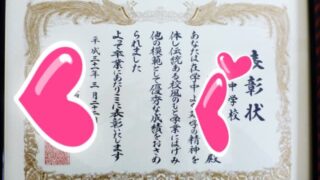 表彰状
中学校
殿
あなたは在学中よく
の精神を
体し伝統ある校風のもと学業にはげみ
他の模範として優秀な成績をおさめ
られました
よって卒業にあたりここに表彰いたします
平成三十一年三月二十